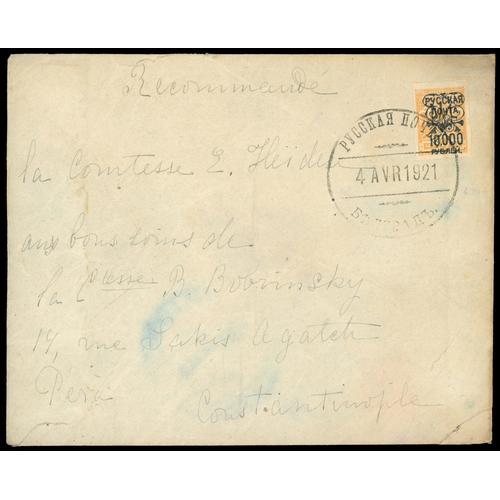 Recommandé
РУССКАЯ
ПОЧТА
10.000
РУБЛЕЙ
РУССКАЯ ПОЧТА
4 AVR 1921
БѢЛГРАДЪ
la Comtesse E. Heiden
aux bons soins de
la Ctesse B. Bobrinsky
19, rue Sakis Agatch
Péra
Constantinople